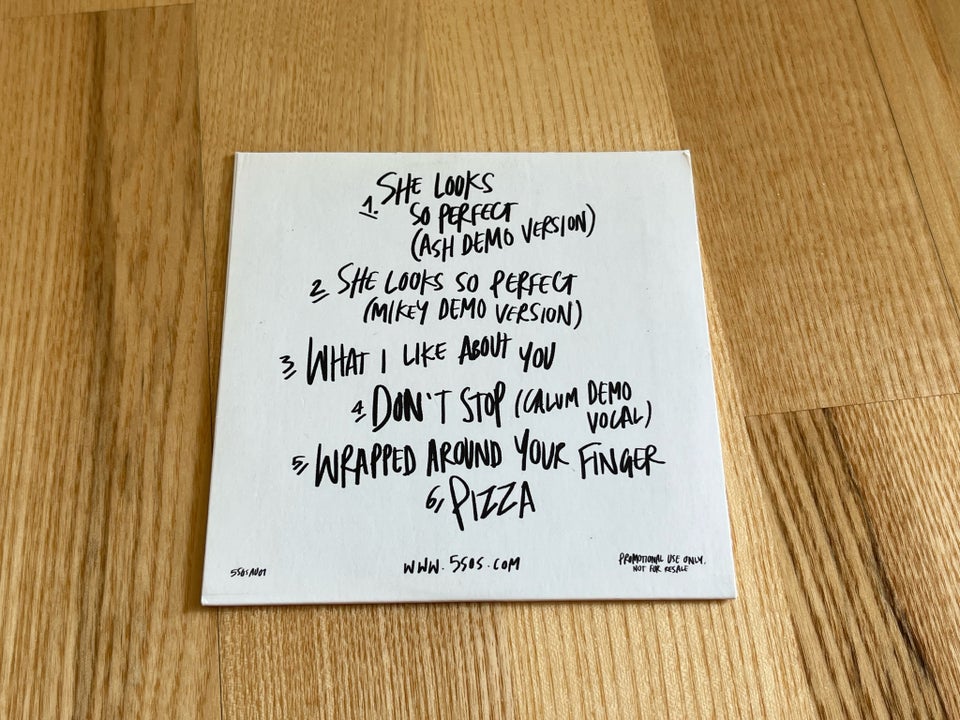 1. SHE LOOKS
SO PERFECT
(ASH DEMO VERSION)
2, SHE LOOKS SO PERFECT
(MIKEY DEMO VERSION)
3, WHAT I LIKE ABOUT YOU
4, DON'T STOP (CALUM DEMO
VOCAL)
5, WRAPPED AROUND YOUR FINGER
6, PIZZA
5SOSAU01
WWW.5SOS.COM
PROMOTIONAL USE ONLY.
NOT FOR RESALE